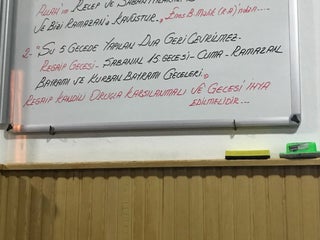 Allah'ım Recep ve Şaban'ı
Ve Bizi Ramazan'a Kavuştur.. Enes B. Malik (r.a)'nden...
2- "Şu 5 Gecede Yapılan Dua Geri Çevrilmez-
Regaip Gecesi- Şabanın 15.gecesi- Cuma- Ramazan
Bayramı ve Kurban Bayramı Geceleri.
Regaip Kandili Oruçla Karşılanmalı ve Gecesi ihya
edilmelidir...